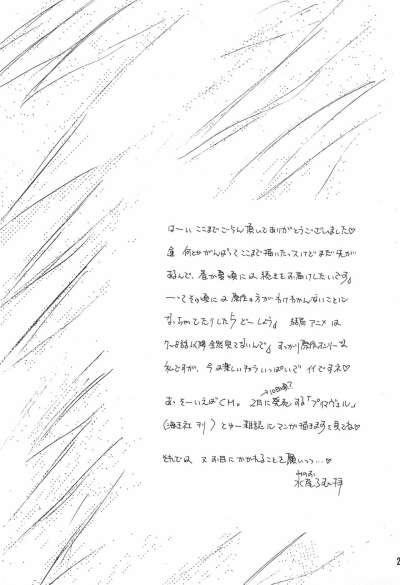 はーい ここまでごらん頂いてありがとうございました♡
何とかがんばってここまで描いたっスけどまだ先が
あるんで、春か夏頃には続きをお届けしたいです。
ーってその頃には原作の方がわけわかんないことに
なっちゃってたりしたらどーしよう。 結局アニメは
7〜8話以降全然見てないんで。すっかり原作オンリーな
私ですが、今は楽しいキモちいっぱいで イイですネ♡
お、そーいえばCM。 2月に発売する「プリマヴェール」
(海王社刊) とゆー雑誌にマンガ描きます 見てね♡
それでは 又お目にかかれることを願いつつ…♡
2